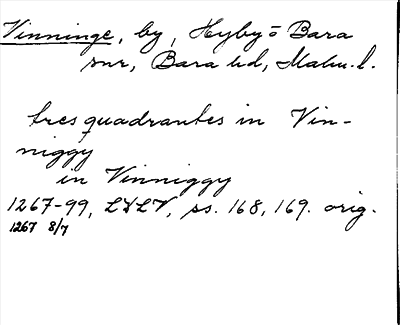 Vinninge, by, Hyby o Bara
snr, Bara hd, Malm. l.
tres quadrantes in Vin-
niggy
in Vinniggy
1267-99, LVLV, ss. 168, 169. orig.
1267 8/7